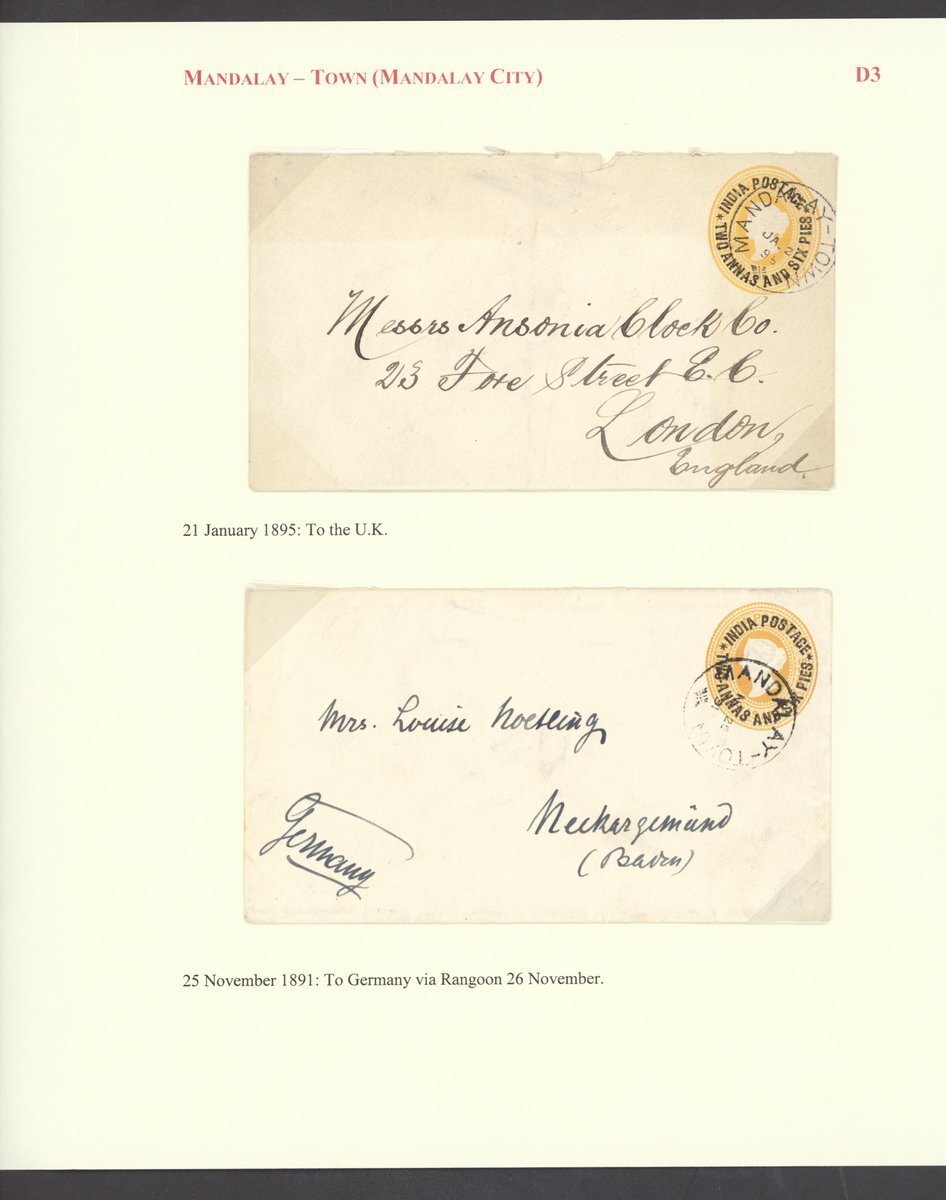 MANDALAY – TOWN (MANDALAY CITY)
D3
* INDIA POSTAGE *
TWO ANNAS AND SIX PIES
MANDALAY-TOWN
JA
Messrs Ansonia Clock Co.
23 Fore Street E.C.
London,
England.
21 January 1895: To the U.K.
* INDIA POSTAGE *
ANNAS AND SIX PIES
MANDALAY-TOWN
Mrs. Louise Noetling
Neckargemünd
(Baden)
Germany
25 November 1891: To Germany via Rangoon 26 November.